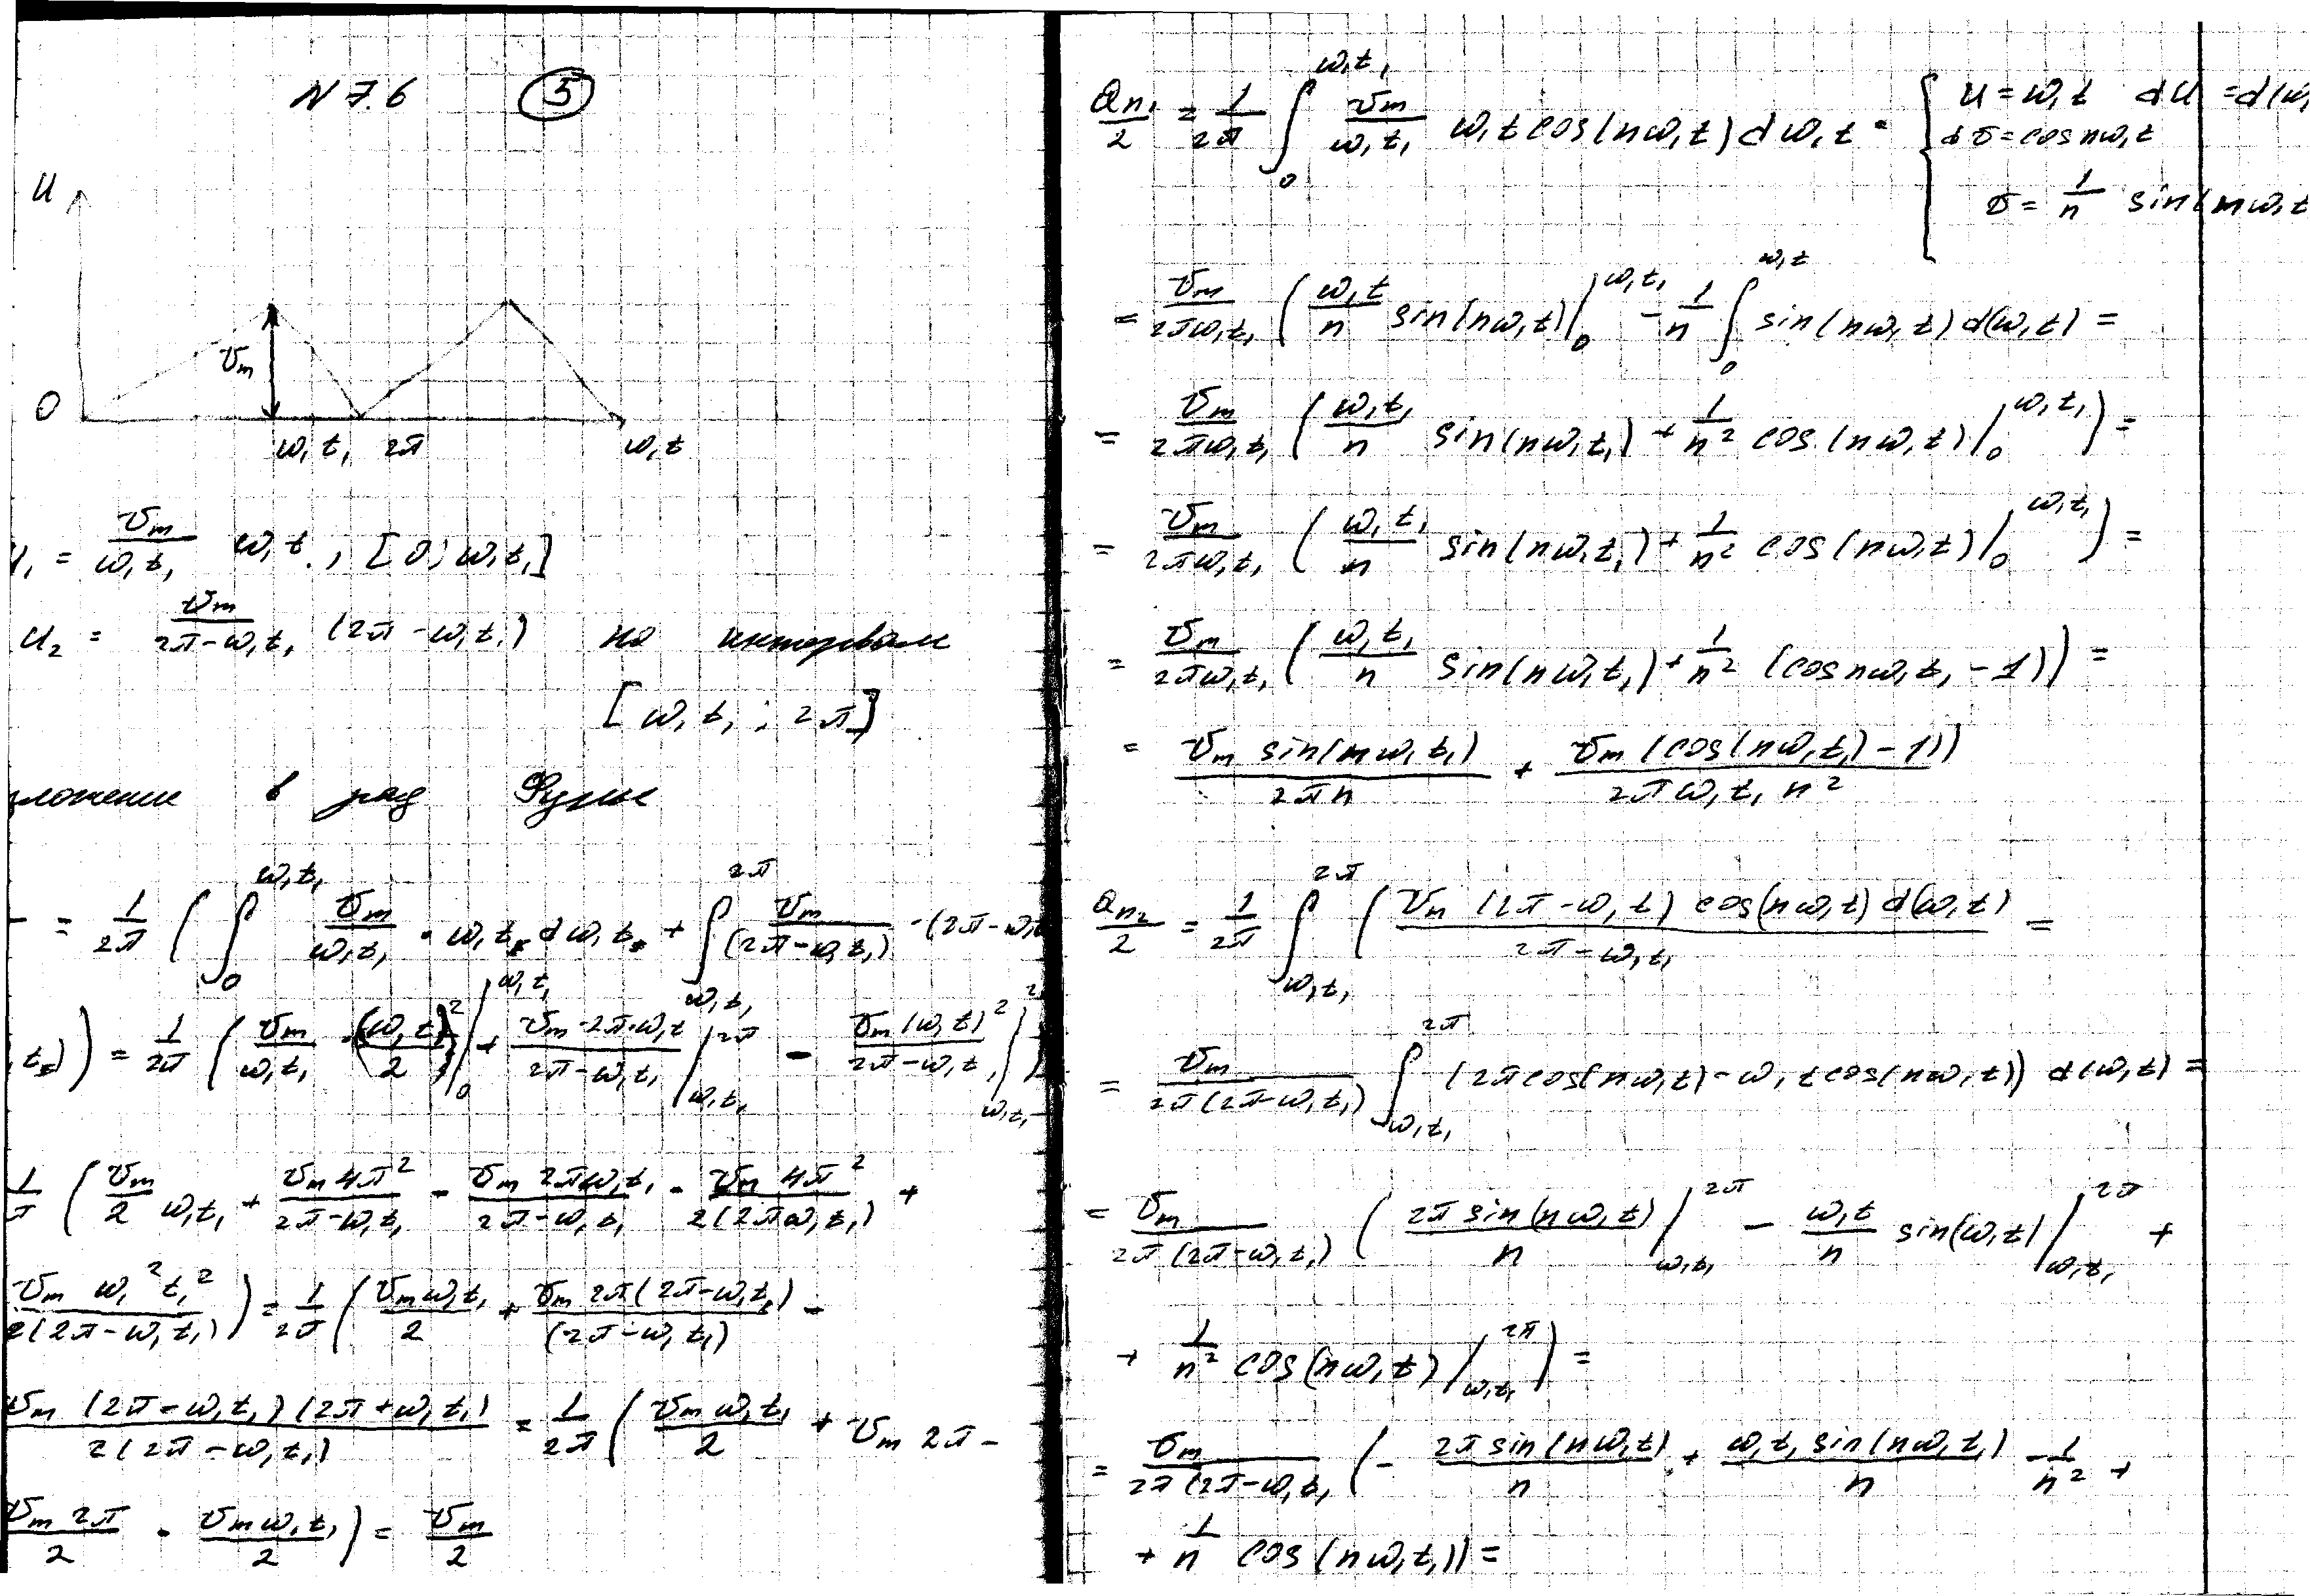 N 7.6 (5)
U
U_m
0
ω₁t₁ 2π ω₁t
U₁ = U_m/(ω₁t₁) ω₁t, [0; ω₁t₁]
U₂ = U_m/(2π-ω₁t₁) (2π-ω₁t₁) на интервале
[ω₁t₁; 2π]
зложение в ряд Фурье
= 1/2π ( ∫₀^{ω₁t₁} U_m/(ω₁t₁) · ω₁t dω₁t + ∫_{ω₁t₁}^{2π} U_m/(2π-ω₁t₁) · (2π-ω₁t
₁t)) = 1/2π ( U_m/(ω₁t₁) · (ω₁t)²/2 |₀^{ω₁t₁} + (U_m · 2π · ω₁t)/(2π-ω₁t₁) |_{ω₁t₁}^{2π} - (U_m (ω₁t)²)/(2π-ω₁t₁) |_{ω₁t₁}^{2
1/π ( U_m/2 ω₁t₁ + (U_m 4π²)/(2π-ω₁t₁) - (U_m 2πω₁t₁)/(2π-ω₁t₁) - (U_m 4π²)/(2(2πω₁t₁)) +
(U_m ω₁²t₁²)/(2(2π-ω₁t₁)) ) = 1/2π ( (U_m ω₁t₁)/2 + (U_m 2π(2π-ω₁t₁))/((2π-ω₁t₁)) -
(U_m (2π-ω₁t₁)(2π+ω₁t₁))/(2(2π-ω₁t₁)) = 1/2π ( (U_m ω₁t₁)/2 + U_m 2π -
(U_m 2π)/2 - (U_m ω₁t₁)/2 ) = U_m/2
a_{n1}/2 = 1/2π ∫₀^{ω₁t₁} U_m/(ω₁t₁) ω₁t cos(nω₁t) dω₁t = { u = ω₁t du = d(ω₁
dv = cos nω₁t
v = 1/n sin(nω₁t
= U_m/(2πω₁t₁) ( (ω₁t)/n sin(nω₁t) |₀^{ω₁t₁} - 1/n ∫₀^{ω₁t} sin(nω₁t) d(ω₁t) =
= U_m/(2πω₁t₁) ( (ω₁t₁)/n sin(nω₁t₁) + 1/n² cos(nω₁t) |₀^{ω₁t₁} ) =
= U_m/(2πω₁t₁) ( (ω₁t₁)/n sin(nω₁t₁) + 1/n² cos(nω₁t) |₀^{ω₁t₁} ) =
= U_m/(2πω₁t₁) ( (ω₁t₁)/n sin(nω₁t₁) + 1/n² (cos nω₁t₁ - 1)) =
= (U_m sin(nω₁t₁))/(2πn) + (U_m (cos(nω₁t₁) - 1))/(2πω₁t₁ n²)
a_{n2}/2 = 1/2π ∫_{ω₁t₁}^{2π} ( (U_m (2π-ω₁t) cos(nω₁t) d(ω₁t))/(2π-ω₁t₁) =
= U_m/(2π(2π-ω₁t₁)) ∫_{ω₁t₁}^{2π} (2π cos(nω₁t) - ω₁t cos(nω₁t)) d(ω₁t) =
= U_m/(2π(2π-ω₁t₁)) ( (2π sin(nω₁t))/n |_{ω₁t₁}^{2π} - (ω₁t)/n sin(ω₁t) |_{ω₁t₁}^{2π} +
+ 1/n² cos(nω₁t) |_{ω₁t₁}^{2π} ) =
= U_m/(2π(2π-ω₁t₁ ( - (2π sin(nω₁t))/n + (ω₁t₁ sin(nω₁t₁))/n - 1/n² +
+ 1/n cos(nω₁t₁)) =